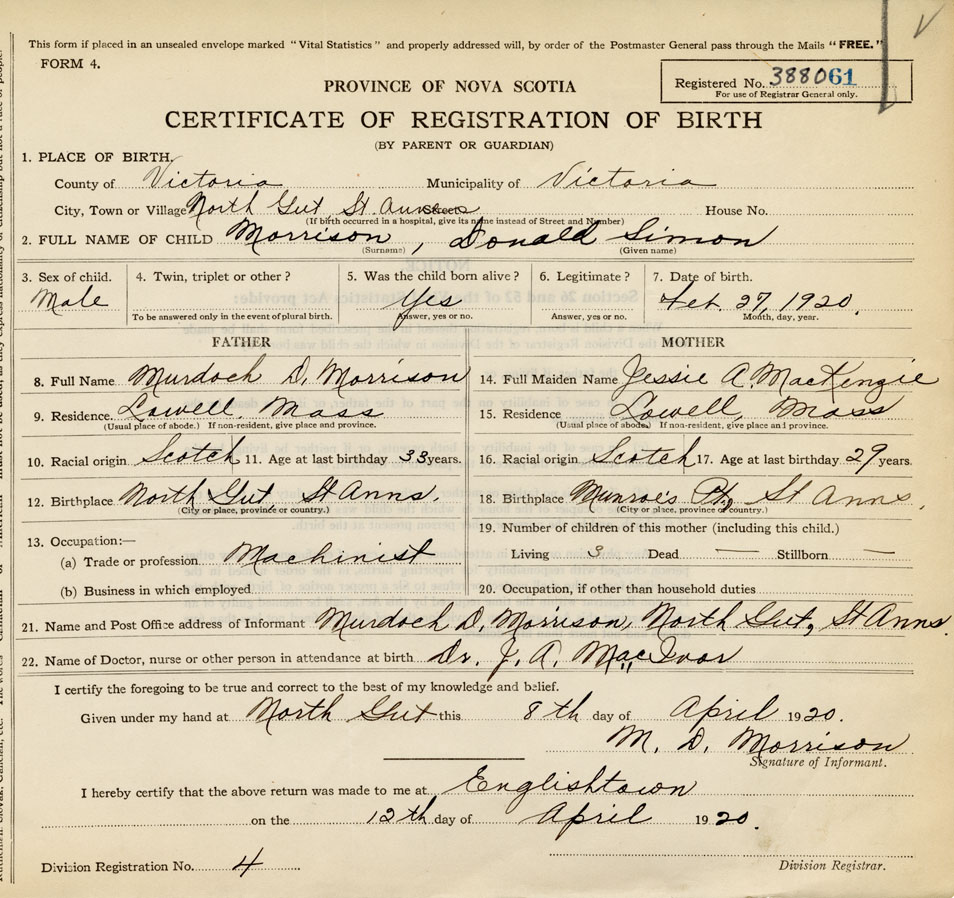 This form if placed in an unsealed envelope marked "Vital Statistics" and properly addressed will, by order of the Postmaster General pass through the Mails "FREE."
FORM 4.
Registered No. 388061
For use of Registrar General only.
PROVINCE OF NOVA SCOTIA
CERTIFICATE OF REGISTRATION OF BIRTH
(BY PARENT OR GUARDIAN)
1. PLACE OF BIRTH.
County of Victoria Municipality of Victoria
City, Town or Village North Gut St Anns Street House No.
(If birth occurred in a hospital, give its name instead of Street and Number)
2. FULL NAME OF CHILD Morrison, Donald Simon
(Surname) (Given name)
3. Sex of child. 4. Twin, triplet or other? 5. Was the child born alive? 6. Legitimate? 7. Date of birth.
Male Yes Feb. 27, 1920.
To be answered only in the event of plural birth. Answer, yes or no. Answer, yes or no. Month, day, year.
FATHER MOTHER
8. Full Name Murdoch D. Morrison 14. Full Maiden Name Jessie A. MacKenzie
9. Residence. Lowell Mass 15. Residence Lowell, Mass
(Usual place of abode.) If non-resident, give place and province. (Usual place of abode.) If non-resident, give place and province.
10. Racial origin Scotch 11. Age at last birthday 33 years. 16. Racial origin Scotch 17. Age at last birthday 29 years.
12. Birthplace North Gut St Anns. 18. Birthplace Munroe's Pt, St Anns.
(City or place, province or country.) (City or place, province or country.)
19. Number of children of this mother (including this child.)
13. Occupation:—
(a) Trade or profession Machinist Living 3 Dead — Stillborn —
(b) Business in which employed 20. Occupation, if other than household duties
21. Name and Post Office address of Informant Murdoch D. Morrison, North Gut, St Anns.
22. Name of Doctor, nurse or other person in attendance at birth Dr. J. A. MacIvor
I certify the foregoing to be true and correct to the best of my knowledge and belief.
Given under my hand at North Gut this 8th day of April 1920.
M. D. Morrison
Signature of Informant.
I hereby certify that the above return was made to me at Englishtown
on the 12th day of April 1920.
Division Registration No. 4 Division Registrar.